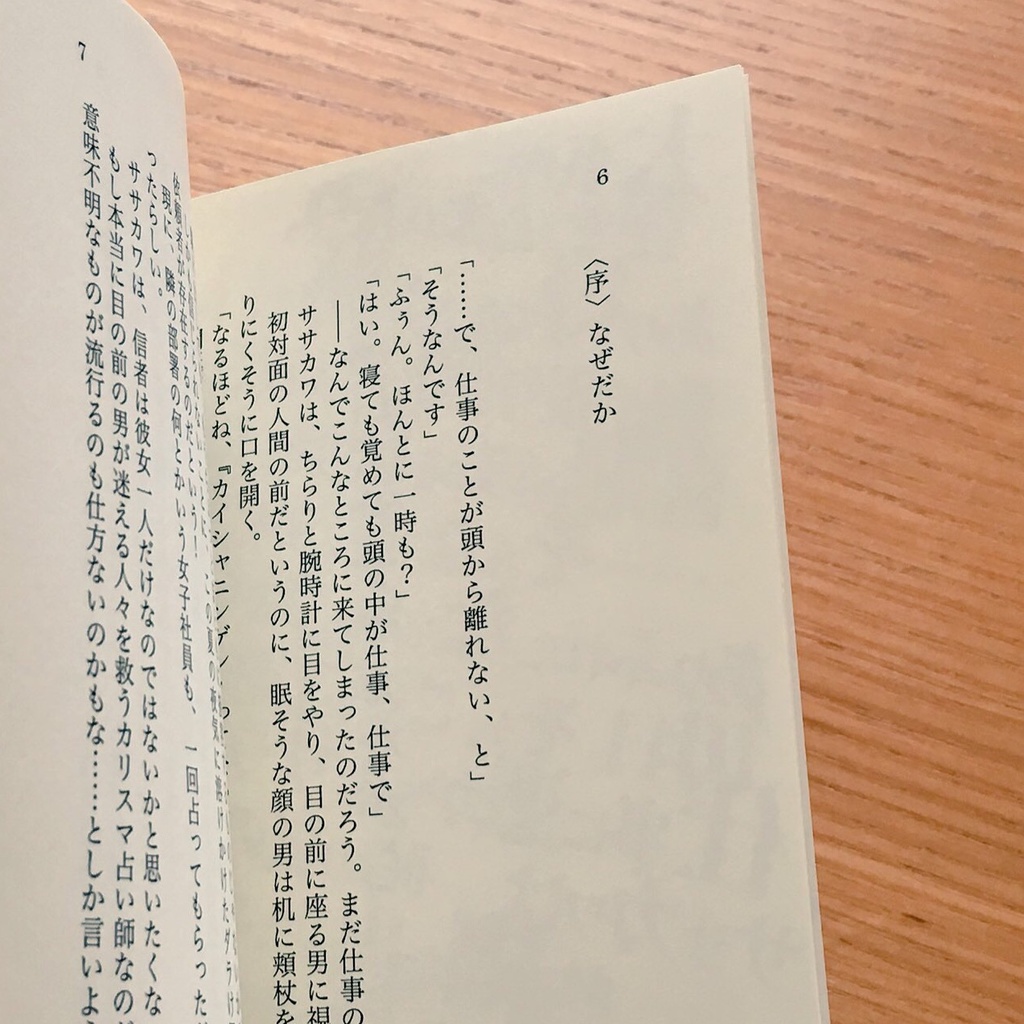 6
〈序〉なぜだか
「……で、仕事のことが頭から離れない、と」
「そうなんです」
「ふぅん。ほんとに一時も？」
「はい。寝ても覚めても頭の中が仕事、仕事で」
――なんでこんなところに来てしまったのだろう。まだ仕事の
ササカワは、ちらりと腕時計に目をやり、目の前に座る男に視
初対面の人間の前だというのに、眠そうな顔の男は机に頬杖を
りにくそうに口を開く。
「なるほどね、『カイシャニンゲン
7
依頼者が存在するのだという！
現に、隣の部署の何とかいう女子社員も、一回占ってもらった
ったらしい。
ササカワは、信者は彼女一人だけなのではないかと思いたくな
もし本当に目の前の男が迷える人々を救うカリスマ占い師なの
意味不明なものが流行るのも仕方ないのかもな……としか言いよ